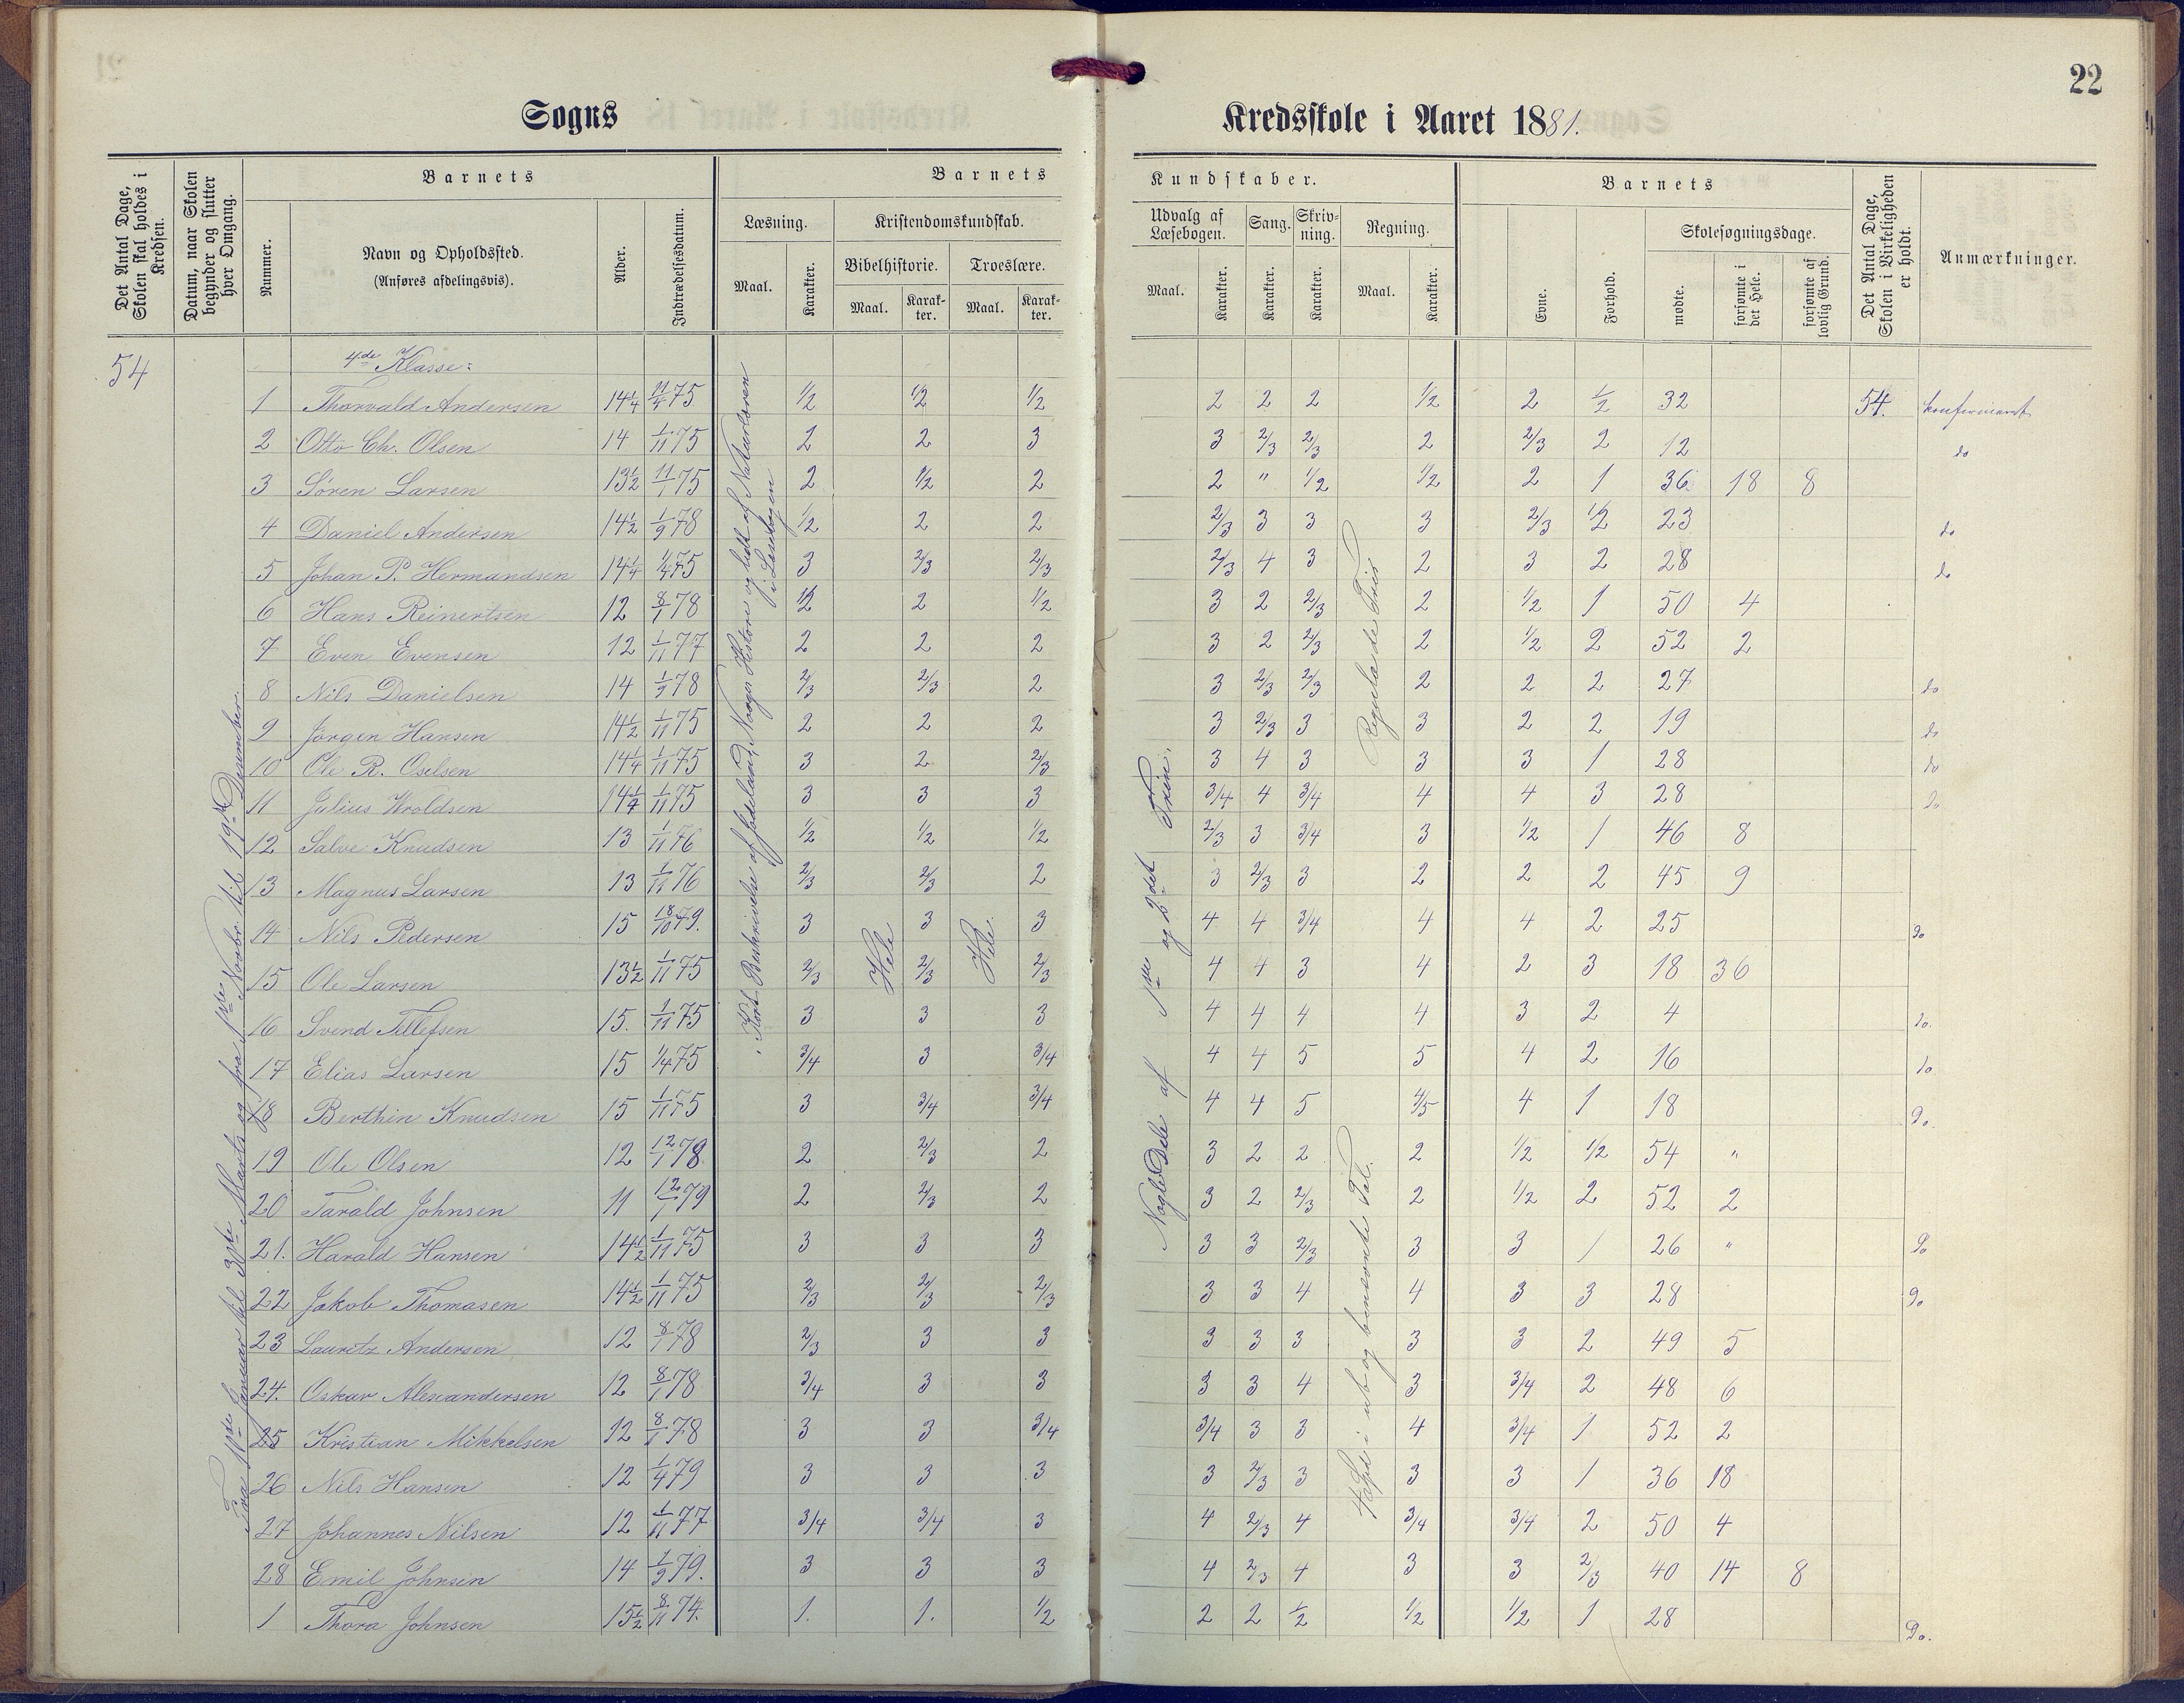 22
Sogns Kredsskole i Aaret 1881.
Det Antal Dage, Skolen skal holdes i Kredsen.
Datum, naar Skolen begynder og slutter hver Omgang.
Barnets
Nummer.
Navn og Opholdssted.
(Anføres afdelingsvis).
Alder.
Indtrædelsesdatum.
Barnets Kundskaber.
Læsning.
Maal.
Karakter.
Kristendomskundskab.
Bibelhistorie.
Maal.
Karakter.
Troeslære.
Maal.
Karakter.
Udvalg af Læsebogen.
Maal.
Karakter.
Sang.
Karakter.
Skrivning.
Karakter.
Regning.
Maal.
Karakter.
Barnets
Evne.
Forhold.
Skolesøgningsdage.
mødte.
forsømte i det Hele.
forsømte af lovlig Grund.
Det Antal Dage, Skolen i Virkeligheden er holdt.
Anmærkninger.
54
4de Klasse:
1 Thorvald Andersen 14¼ 11/4 75 1/2 1/2 1/2 2 2 2 1/2 2 1/2 32 54. konfirmeret
2 Otto Ch. Olsen 14 1/11 75 2 2 3 3 2/3 2/3 2 2/3 2 12 do
3 Sören Larsen 13½ 11/1 75 2 1/2 2 2 " 1/2 1/2 2 1 36 18 8
4 Daniel Andersen 14½ 1/9 78 1/2 2 2 2/3 3 3 3 2/3 1/2 23 do
5 Johan P. Hermandsen 14¼ 1/4 75 3 2/3 2/3 2/3 4 3 2 3 2 28 do
6 Hans Reinertsen 12 8/1 78 1/2 2 1/2 3 2 2/3 2 1/2 1 50 4
7 Even Evensen 12 1/11 77 2 2 2 3 2 2/3 2 1/2 2 52 2
8 Nils Danielsen 14 1/9 78 2/3 2/3 2 3 2/3 2/3 2 2 2 27 do
9 Jörgen Hansen 14½ 1/11 75 2 2 2 3 2/3 3 3 2 2 19 do
10 Ole R. Oselsen 14¼ 1/11 75 3 2 2/3 3 4 3 3 3 1 28 do
11 Julius Wroldsen 14¼ 1/11 75 3 3 3 3/4 4 3/4 4 4 3 28 do
12 Salve Knudsen 13 1/11 76 1/2 1/2 1/2 2/3 3 3/4 3 1/2 1 46 8
13 Magnus Larsen 13 1/11 76 2/3 2/3 2 3 2/3 3 2 2 2 45 9
14 Nils Pedersen 15 18/10 79. 3 3 3 4 4 3/4 4 4 2 25 do
15 Ole Larsen 13½ 1/11 75 2/3 2/3 2/3 4 4 3 4 2 3 18 36
16 Svend Tellefsen 15. 1/11 75 3 3 3 4 4 4 4 3 2 4 do.
17 Elias Larsen 15 1/4 75 3/4 3 3/4 4 4 5 5 4 2 16 do
18 Berthin Knudsen 15 1/11 75 3 3/4 3/4 4 4 5 4/5 4 1 18 Do.
19 Ole Olsen 12 12/1 78. 2 2/3 2 3 2 2 2 1/2 1/2 54 "
20 Tarald Johnsen 11 12/1 79 2 2/3 2 3 2 2/3 2 1/2 2 52 2
21. Harald Hansen 14½ 1/11 75 3 3 3 3 3 2/3 3 3 1 26 " Do
22 Jakob Thomasen 14½ 1/11 75 2/3 2/3 2/3 3 3 4 4 3 3 28 Do
23 Lauritz Andersen 12 8/1 78 2/3 3 3 3 3 3 3 3 2 49 5
24. Oskar Alexandersen 12 8/1 78 3/4 3 3 3 3 4 3 3/4 2 48 6
25 Kristian Mikkelsen 12 8/1 78 3 3 3/4 3/4 3 3 4 3/4 1 52 2
26 Nils Hansen 12 1/4 79 3 3 3 3 2/3 3 3 3 1 36 18
27 Johannes Nilsen 12 1/11 77 3/4 3/4 3 4 2/3 4 3/4 3/4 2 50 4
28 Emil Johnsen 14 1/9 79. 3 3 3 4 2/3 4 3 3 2/3 40 14 8
1 Thora Johnsen 15½ 8/11 74. 1. 1. 1/2 2 2 1/2 1/2 1/2 1 28 Do.
Fra 10de Januar til 30te Marts og fra 1ste Novbr. til 19de Desember
Kort Beskrivelse af fødeland, Noages Historie og lidt af Naturlæren i Læsebogen
Hele
Hele
Nogle Dele af 1ste og 2det Trin.
Hoved i ub og benævnte Tal. Regula de Tries